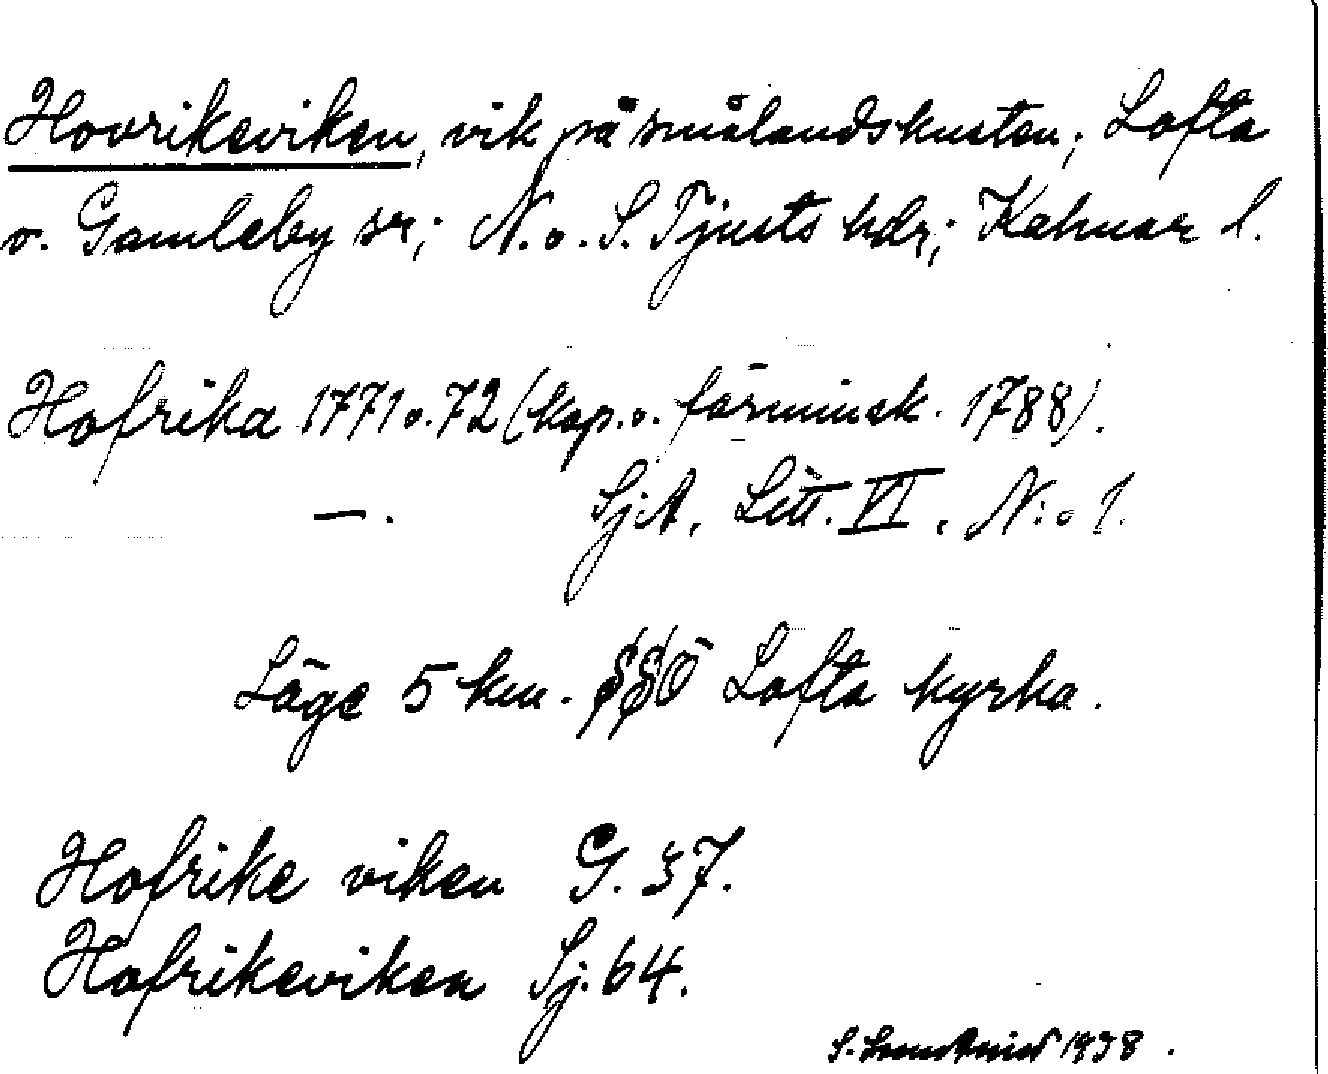 Hovrikeviken, vik på smålandskusten; Lofta
o. Gamleby sr; N. o. S. Tjusts hdr; Kalmar l.
Hofrika 1771 o. 72 (kop. o. förminsk. 1788).
—. SjA, Litt. VI, N:o 1.
Läge 5 km. SSÖ Lofta kyrka.
Hofrike viken G. 37.
Hofrikeviken Sj. 64.
S. 1938.